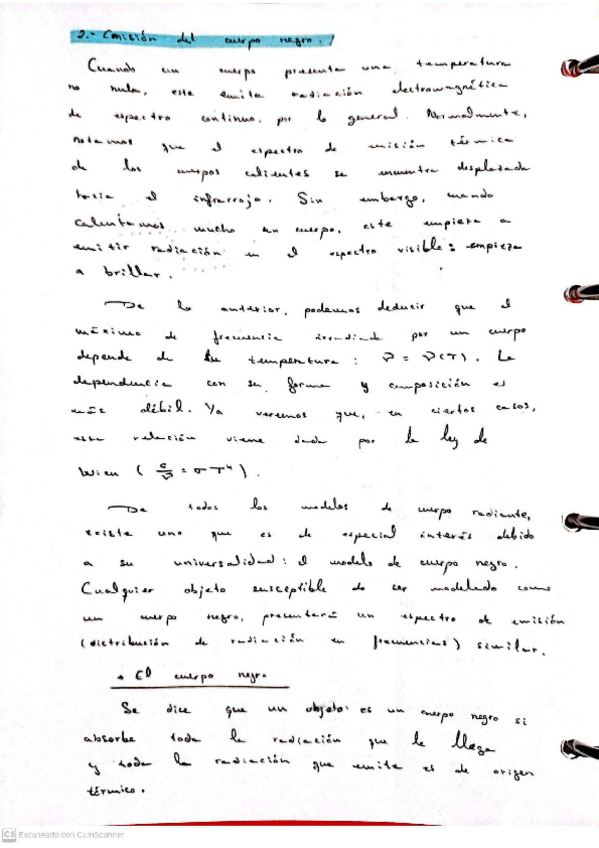 2.- Emisión del cuerpo negro.
Cuando un cuerpo presenta una temperatura
no nula, este emite radiación electromagnética
de espectro continuo, por lo general. Normalmente,
notamos que el espectro de emisión térmica
de los cuerpos calientes se encuentra desplazada
hacia el infrarrojo. Sin embargo, cuando
calentamos mucho un cuerpo, este empieza a
emitir radiación en el espectro visible: empieza
a brillar.
De lo anterior, podemos deducir que el
máximo de frecuencia irradiada por un cuerpo
depende de su temperatura: ν = ν(T). La
dependencia con su forma y composición es
más débil. Ya veremos que, en ciertos casos,
esta relación viene dada por la ley de
Wien ( c/ν = σ T⁴ ).
De todos los modelos de cuerpo radiante,
existe uno que es de especial interés debido
a su universalidad: el modelo de cuerpo negro.
Cualquier objeto susceptible de ser modelado como
un cuerpo negro, presentará un espectro de emisión
(distribución de radiación en frecuencias) similar.
* El cuerpo negro
Se dice que un objeto es un cuerpo negro si
absorbe toda la radiación que le llega
y toda la radiación que emite es de origen
térmico.
CS Escaneado con CamScanner